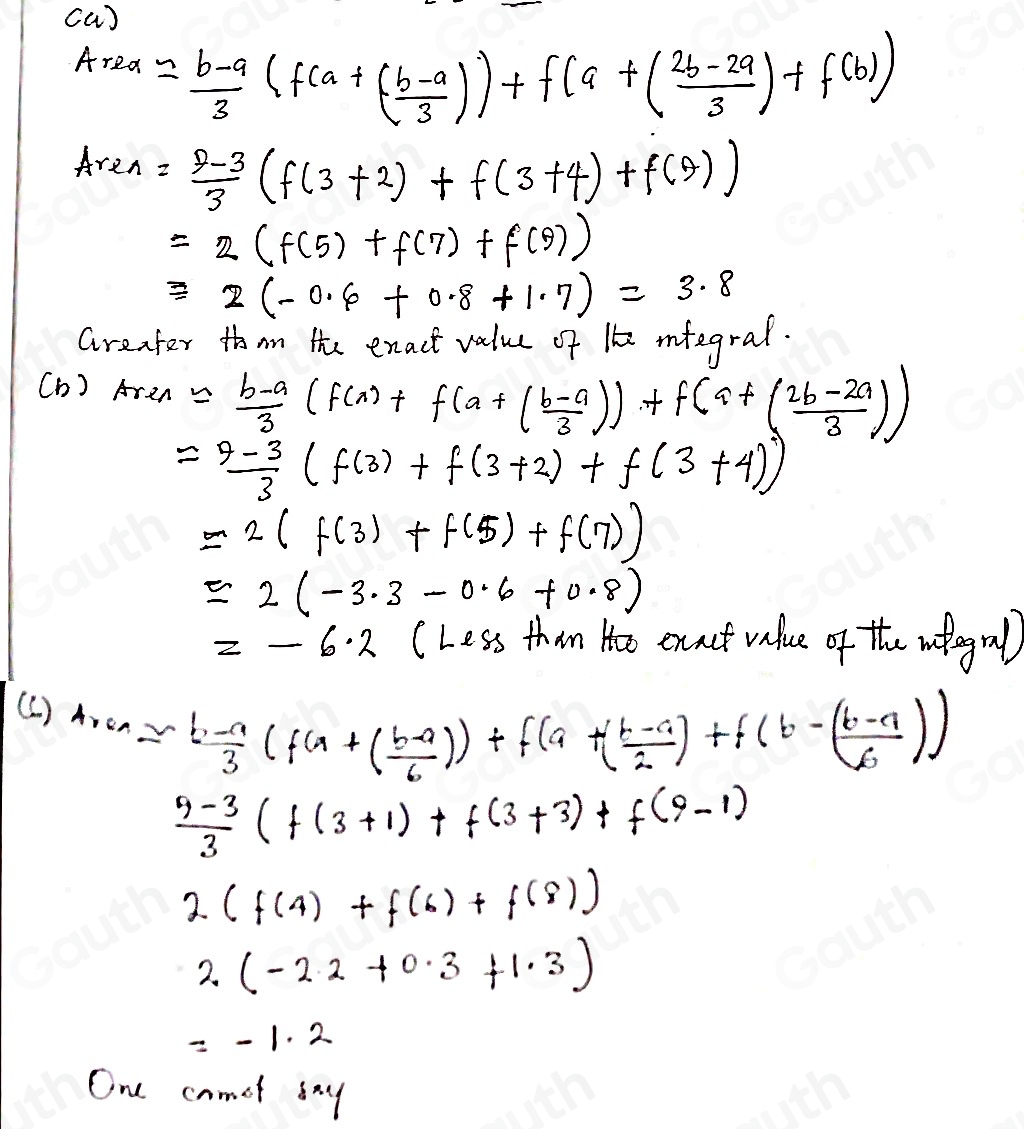 (a)
Area ≃ b-a/3 (f(a + (b-a/3)) + f(a + (2b-2a/3) + f(b))
Area = 9-3/3 (f(3+2) + f(3+4) + f(9))
= 2 (f(5) + f(7) + f(9))
= 2 (-0.6 + 0.8 + 1.7) = 3.8
Greater than the exact value of the integral.
(b) Area ≃ b-a/3 (f(a) + f(a + (b-a/3)) + f(a + (2b-2a/3))
= 9-3/3 (f(3) + f(3+2) + f(3+4))
≃ 2 ( f(3) + f(5) + f(7))
≃ 2 (-3.3 - 0.6 + 0.8)
= - 6.2 (Less than the exact value of the integral)
(c) Area ≃ b-a/3 (f(a + (b-a/6)) + f(a + (b-a/2) + f(b - (b-a/6))
9-3/3 (f(3+1) + f(3+3) + f(9-1)
2 (f(4) + f(6) + f(8))
2 (-2.2 + 0.3 + 1.3)
= - 1.2
One cannot say